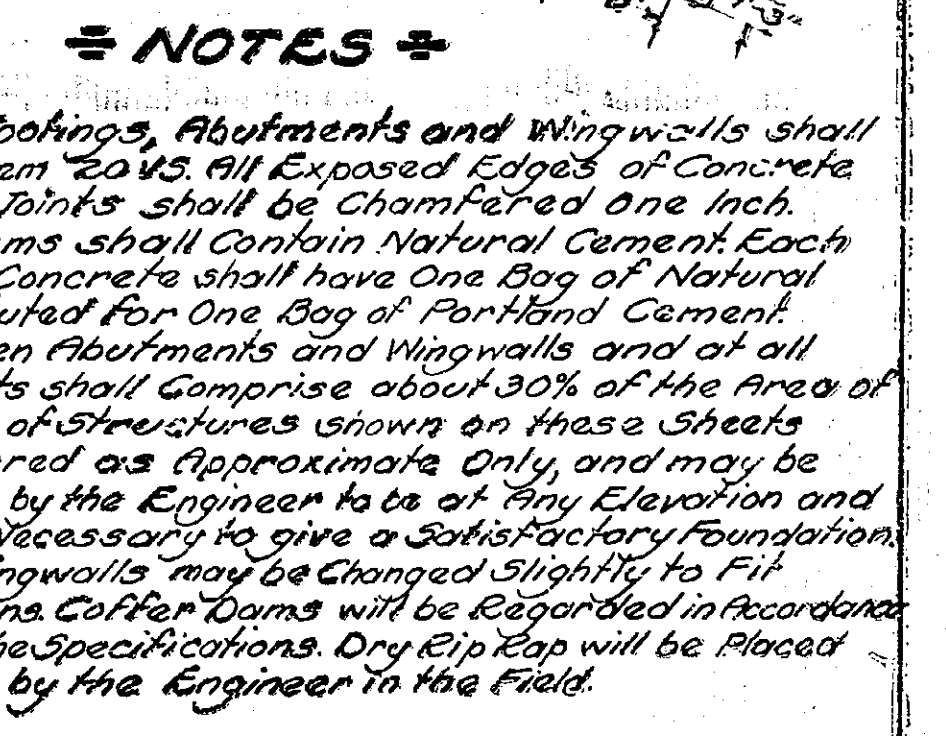 3"
NOTES
ootings, Abutments and Wingwalls shall
em 20 VS. All Exposed Edges of Concrete
Joints shall be Chamfered One Inch.
ms shall Contain Natural Cement. Each
Concrete shall have One Bag of Natural
uted for One Bag of Portland Cement.
en Abutments and Wingwalls and at all
ts shall Comprise about 30% of the Area of
of Structures shown on these Sheets
red as Approximate Only, and may be
by the Engineer to be at Any Elevation and
Necessary to give a Satisfactory Foundation.
ngwalls may be Changed Slightly to Fit
ns. Coffer Dams will be Regarded in Accordance
he Specifications. Dry Rip Rap will be Placed
by the Engineer in the Field.